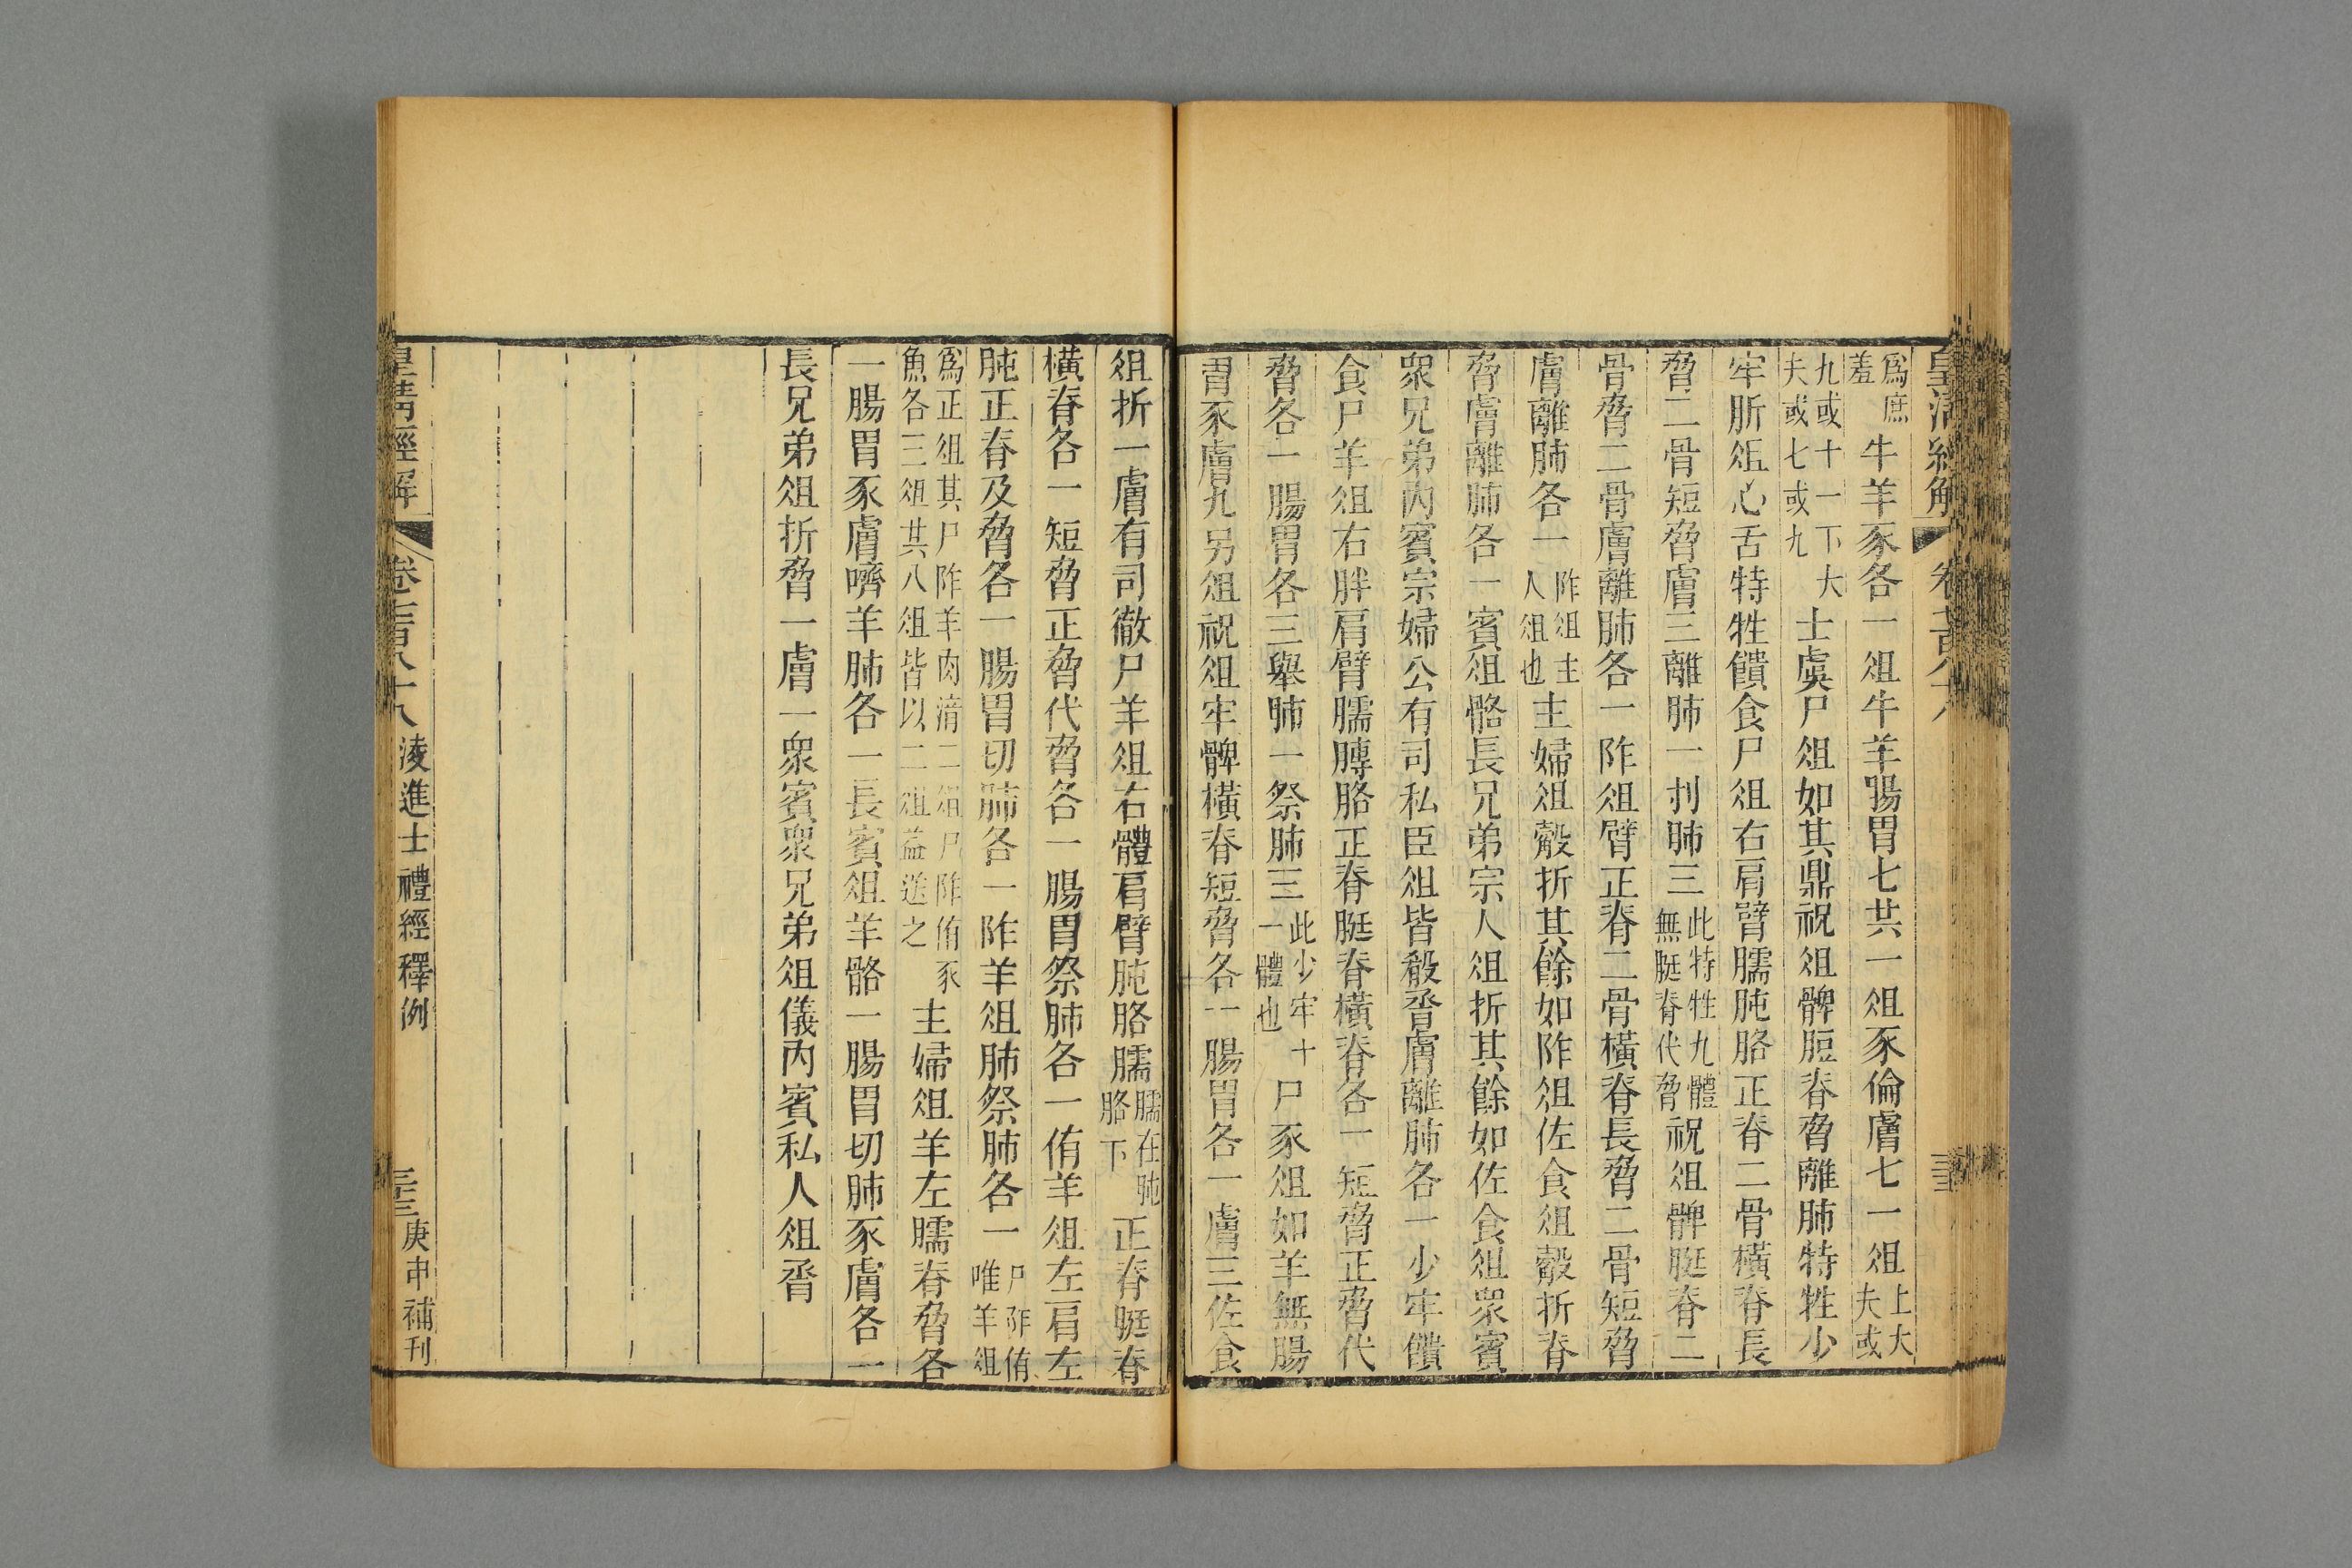 爲庶羞牛羊豕各一俎牛羊腸胃七共一俎豕倫膚七一俎上大夫或
九或十一下大夫或七或九士虞尸俎如其鼎祝俎髀脰脊脅離肺特牲少
牢肵俎心舌特牲饋食尸俎右肩臂臑肫胳正脊二骨橫脊長
脅二骨短脅膚三離肺一刌肺三此特牲九體無脡脊代脅祝俎髀脡脊二
骨脅二骨膚離肺各一阼俎臂正脊二骨橫脊長脅二骨短脅
膚離肺各一阼俎主人俎也主婦俎觳折其餘如阼俎佐食俎觳折脊
脅膚離肺各一賓俎骼長兄弟宗人俎折其餘如佐食俎衆賓
衆兄弟內賓宗婦公有司私臣俎皆殽脀膚離肺各一少牢饋
食尸羊俎右胖肩臂臑膊胳正脊脡脊橫脊各一短脅正脅代
脅各一腸胃各三舉肺一祭肺三此少牢十一體也尸豕俎如羊無腸
胃豕膚九另俎祝俎牢髀橫脊短脅各一腸胃各一膚三佐食
俎折一膚有司徹尸羊俎右體肩臂肫胳臑臑在肫胳下正脊脡脊
橫脊各一短脅正脅代脅各一腸胃祭肺各一侑羊俎左肩左
肫正脊及脅各一腸胃切肺各一阼羊俎肺祭肺各一尸阼侑唯羊俎
爲正俎其尸阼羊肉湆二俎尸阼侑豕魚各三俎其八俎皆以二俎益送之主婦俎羊左臑脊脅各
一腸胃豕膚嚌羊肺各一長賓俎羊骼一腸胃切肺豕膚各一
長兄弟俎折脅一膚一衆賓衆兄弟俎儀內賓私人俎脀
皇清經解 卷七百八十八 淩進士禮經釋例 三十三 庚申補刊